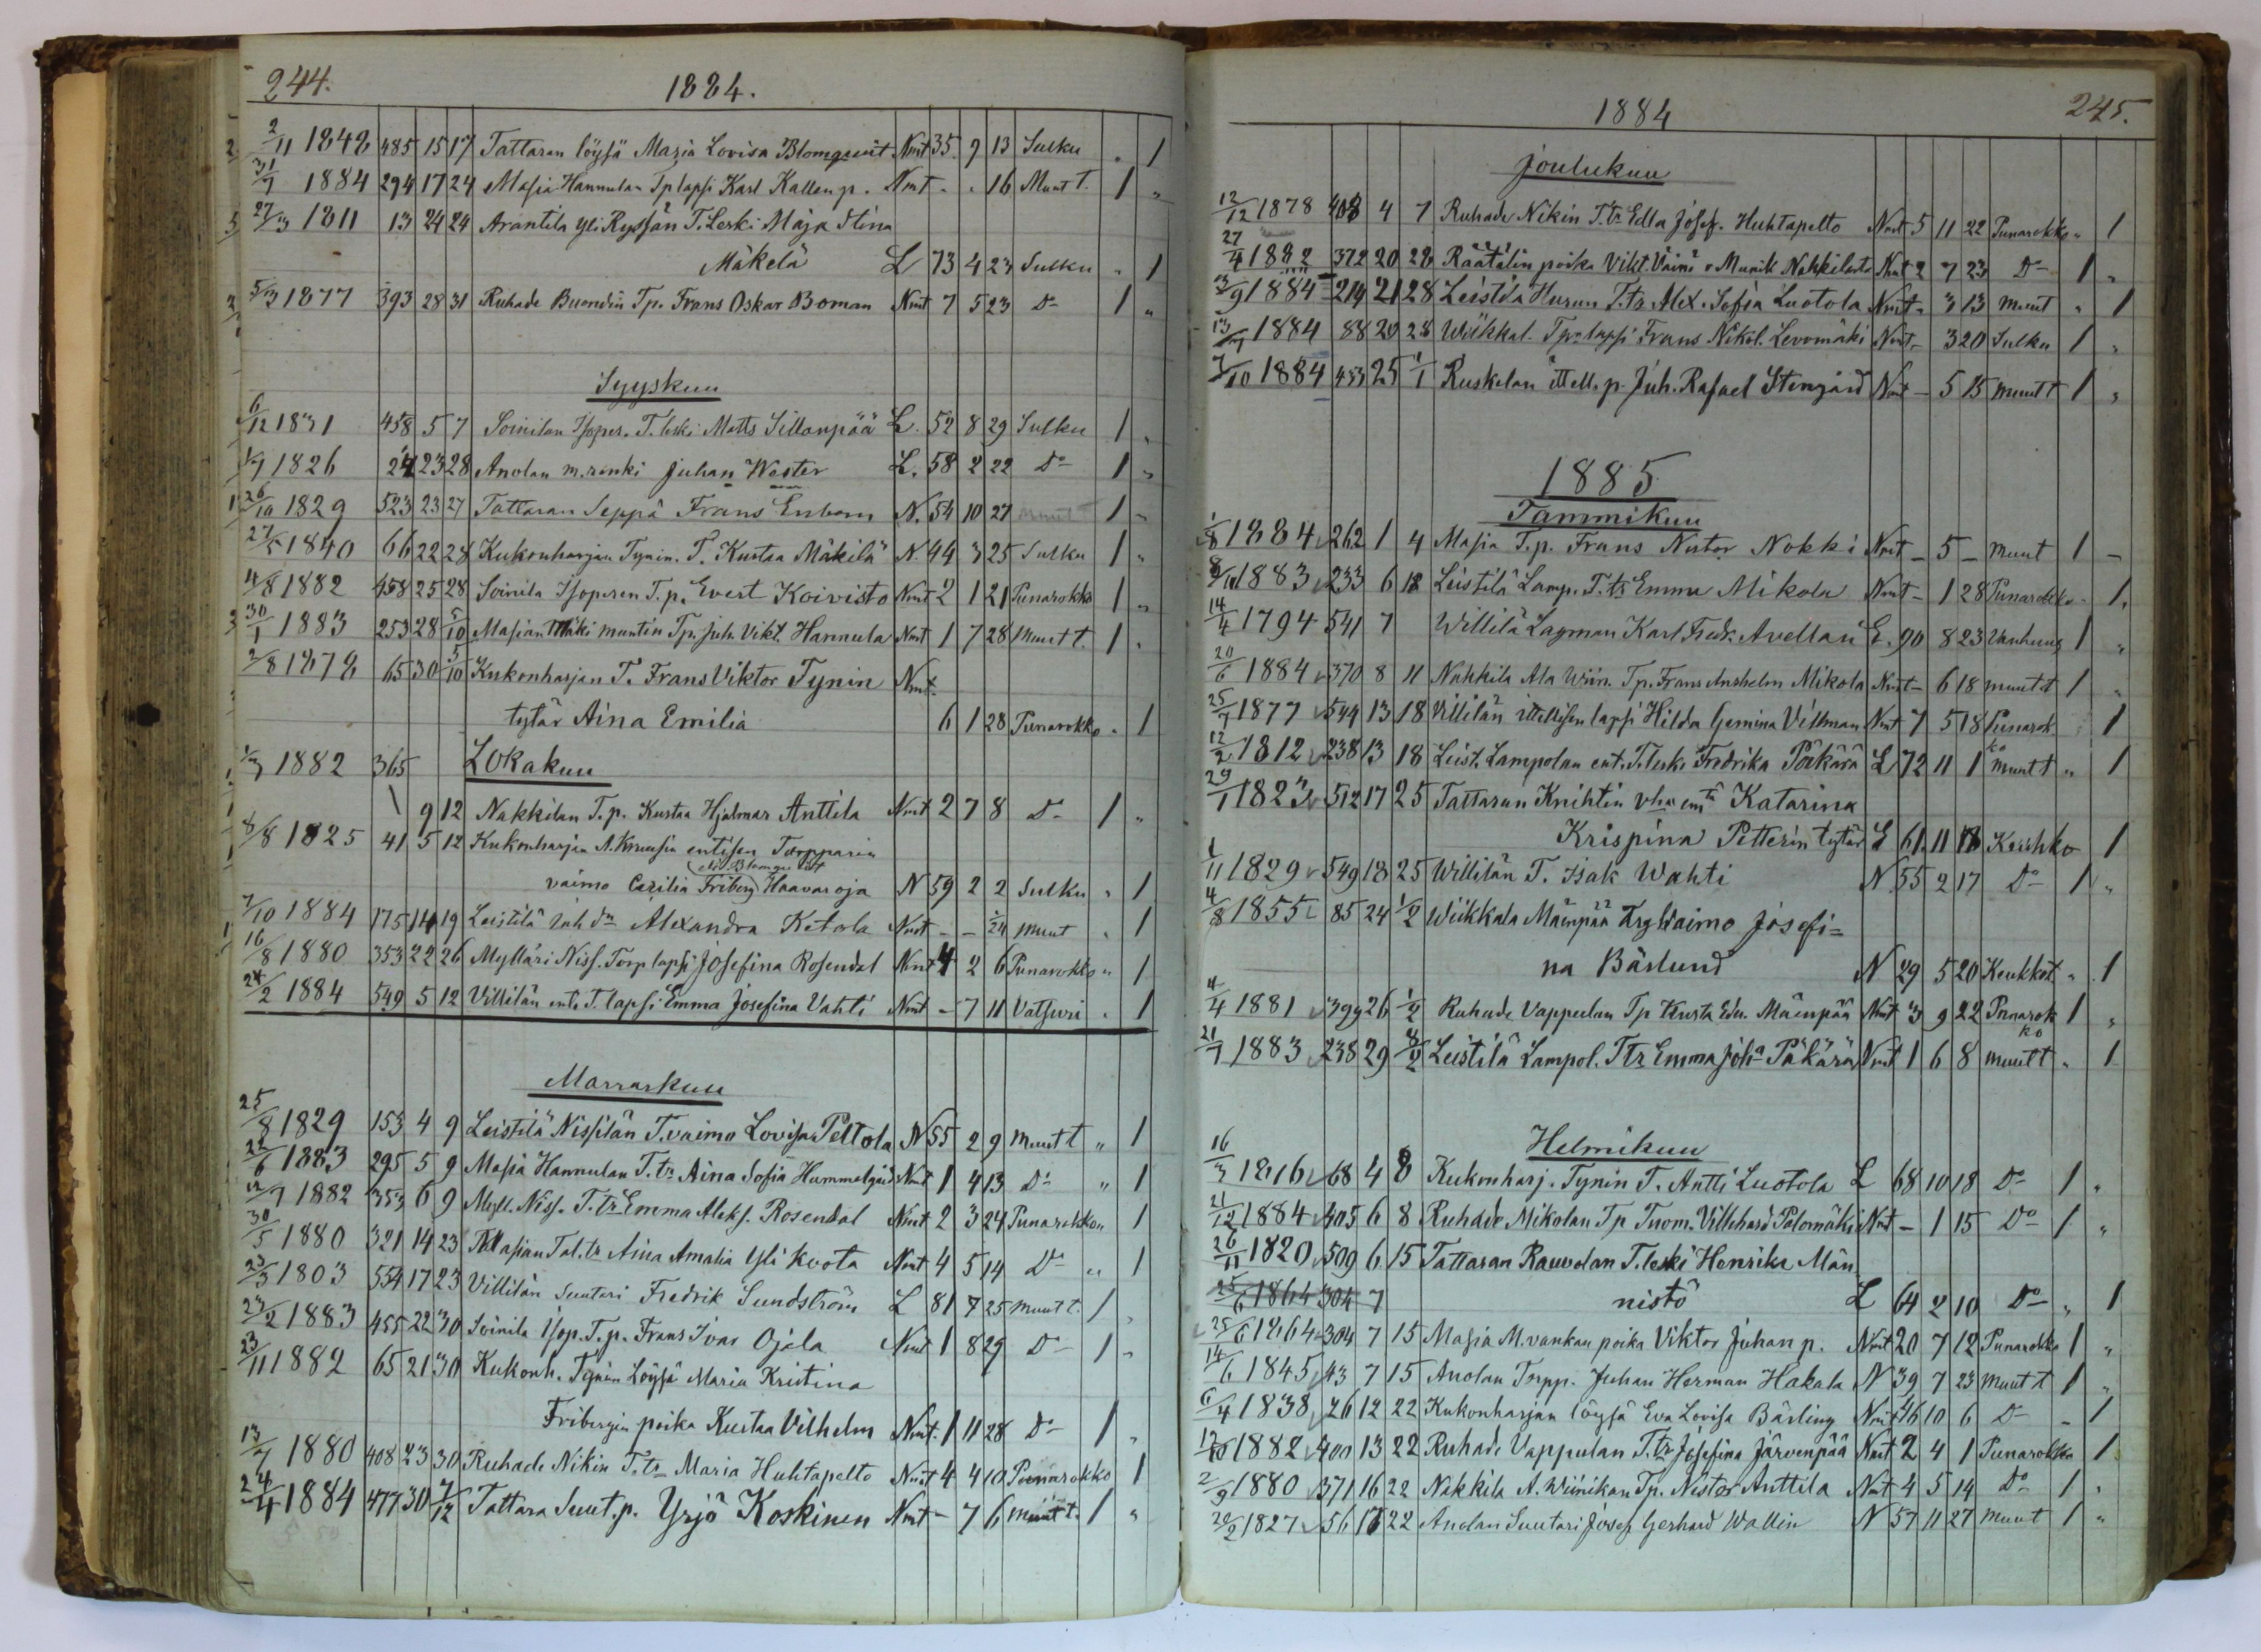 244.
1884.
2/11 1848 485 15 17 Tattaran löysä Maria Lovisa Blomqvist Nmt 35 9 13 Sulku „ 1
31/7 1884 294 17 24 Masia Hannulan Tp lapsi Karl Kallen p. Nmt - - 16 Muut t. 1 „
27/3 1811 13 24 24 Arantila Yli Ryssän T. Leski Maja Stina
Mäkelä L 73 4 23 Sulku „ 1
5/3 1877 393 28 31 Ruhade Tp. Frans Oskar Boman Nmt 7 5 23 Do 1 „
Syyskuu
6/12 1831 458 5 7 Soinilan Isoper. T. leski Matts Sillanpää L. 52 8 29 Sulku 1 „
1/7 1826 24 23 28 Anolan m. renki Juhan Wester L. 58 2 22 Do 1 „
26/10 1829 523 23 27 Tattaran Seppä Frans Enbom N. 54 10 27 Muut t 1 „
27/5 1840 66 22 28 Kukonharjan Tynin. T. Kustaa Mäkilä N. 44 3 25 Sulku 1 „
4/8 1882 458 25 28 Soinila Isoperen T. p. Evert Koivisto Nmt 2 1 21 Punarokko 1 „
30/1 1883 253 28 5/10 Masian Mäki muntin Tp. Juh. Vikt. Hannula Nmt 1 7 28 Muut t. 1 „
2/8 1878 65 30 5/10 Kukonharjan T. Frans Viktor Tynin Nmt.
tytär Aina Emilia 6 1 28 Punarokko „ 1
1/3 1882 365 Lokakuu
9 12 Nakkilan T. p. Kustaa Hjalmar Anttila Nmt 2 7 8 Do 1 „
8/8 1825 41 5 12 Kukonharjan A. Kruusin entisen Torpparin
vaimo Cezilia Friberg Haavaroja N 59 2 2 Sulku „ 1
7/10 1884 175 14 19 Leistilä Alexandra Ketola Nmt - - 7/24 Muut „ 1
16/8 1880 353 22 26 Mylläri Niss. Torp lapsi Josefina Rosendal Nmt 4 2 6 Punarokko „ 1
24/2 1884 549 5 12 Villilän ent. T. lapsi Emma Josefina Vahti Nmt - 7 11 Vatsuri „ 1
Marraskuu
25/8 1829 153 4 9 Leistilä Nissilän T. vaimo Lovisa Peltola N 55 2 9 Muut t „ 1
22/6 1883 295 5 9 Masia Hannulan T. tr Aina Sofia Hummelgård Nmt 1 4 13 Do „ 1
12/7 1882 353 6 9 Myll. Niss. T. tr Emma Aleks. Rosendal Nmt 2 3 24 Punarokko „ 1
30/5 1880 321 14 23 Masian Tal. tr Aina Amalia Yli Knota Nmt 4 5 14 Do „ 1
23/3 1803 554 17 23 Villilän Suutari Fredrik Sundström L 81 7 25 Muut t. 1 „
23/2 1883 455 22 30 Soinila Isop. T. p. Frans Ivar Ojala Nmt 1 8 29 Do 1 „
23/11 1882 65 21 30 Kukonh. Tynin Löysä Maria Kristina
Fribergin poika Kustaa Vilhelm Nmt. 1 11 28 Do 1 „
13/7 1880 408 23 30 Ruhade Nikin T. tr Maria Huhtapelto Nmt 4 4 10 Punarokko 1
24/4 1884 477 30 7/12 Tattara Suut. p. Yrjö Koskinen Nmt - 7 6 Muut t. 1 „
1884
245.
Joulukuu
12/12 1878 408 4 7 Ruhade Nikin T. tr Edla Josef. Huhtapelto Nmt 5 11 22 Punarokko „ 1
27/4 1882 372 20 28 Räätälin poika Vikt. Väinö Nmt 2 7 23 Do 1 „
3/9 1884 214 21 28 Leistilä Hurun T. tr. Alex. Sofia Luotola Nmt - 3 13 Muut „ 1
13/7 1884 88 20 28 Wiikkal. Tp. lapsi Frans Nikol. Levomäki Nmt - 3 20 Sulku 1 „
7/10 1884 453 25 1/1 Ruskelan ittell. p. Juh. Rafael Stengård Nmt - 5 15 Muut t 1 „
1885
Tammikuu
1/8 1884 262 1 4 Masia T. p. Frans Nestor Nokki Nmt - 5 - Muut 1 -
8/11 1883 233 6 18 Leistilä Lamp. T. tr Emma Mikola Nmt - 1 28 Punarokko - 1.
14/4 1794 541 7 Willilä Lagman Karl Fredr. Avellan E. 90 8 23 Vanhuus 1 „
20/6 1884 370 8 11 Nakkila Ala Wiin. Tp. Frans Anshelm Mikola Nmt - 6 18 Muut t 1 „
25/7 1877 544 13 18 Villilän ittellisen lapsi Hilda Gemina Villman Nmt 7 5 18 Punarokko 1
12/2 1812 238 13 18 Leist. Lampolan ent. T. leski Fredrika Päkärä L 72 11 1 Muut t „ 1
29/1 1823 512 17 25 Tattaran Knihtin Katarina
Krispina Petterin tytär L 61 11 18 Keuhko 1
1/11 1829 549 18 25 Willilän T. Isak Wahti N 55 2 17 Do 1 „
4/8 1855 85 24 1/2 Wiikkala Mäenpää vaimo Josefi=
na Bärlund N 29 5 20 Keuhkot „ 1
4/4 1881 399 26 1/2 Ruhade Vappulan Tp Kusta Edv. Mäenpää Nmt 3 9 22 Punarokko 1 „
21/7 1883 238 29 4/2 Leistilä Lampol. T tr Emma Joha Päkärä Nmt 1 6 8 Muut t „ 1
Helmikuu
16/3 1816 68 4 8 Kukonharj. Tynin T. Antti Luotola L 68 10 18 Do 1 „
21/12 1884 405 6 8 Ruhade Mikolan Tp Tuom. Villehard Palomäki Nmt - 1 15 Do 1 „
26/11 1820 509 6 15 Tattaran Rauvolan T. leski Henrika Män
25/6 1864 304 7 nistö L 64 2 10 Do „ 1
25/6 1864 304 7 15 Masia M. vankan poika Viktor Juhan p. Nmt 20 7 12 Punarokko 1 „
14/6 1845 43 7 15 Anolan Torpp. Juhan Herman Hakala N 39 7 23 Muut t 1 „
6/4 1838 76 12 22 Kukonharjan löysä Eva Lovisa Bärling Nmt 46 10 6 Do - 1
12/10 1882 400 13 22 Ruhade Vappulan T. tr Josefina Järvenpää Nmt 2 4 1 Punarokko 1
2/9 1880 371 16 22 Nakkila A. Wiinikan Tp. Nestor Anttila Nmt 4 5 14 Do 1 „
20/2 1827 56 17 22 Anolan Suutari Josef Gerhard Wallin N 57 11 27 Muut 1 „